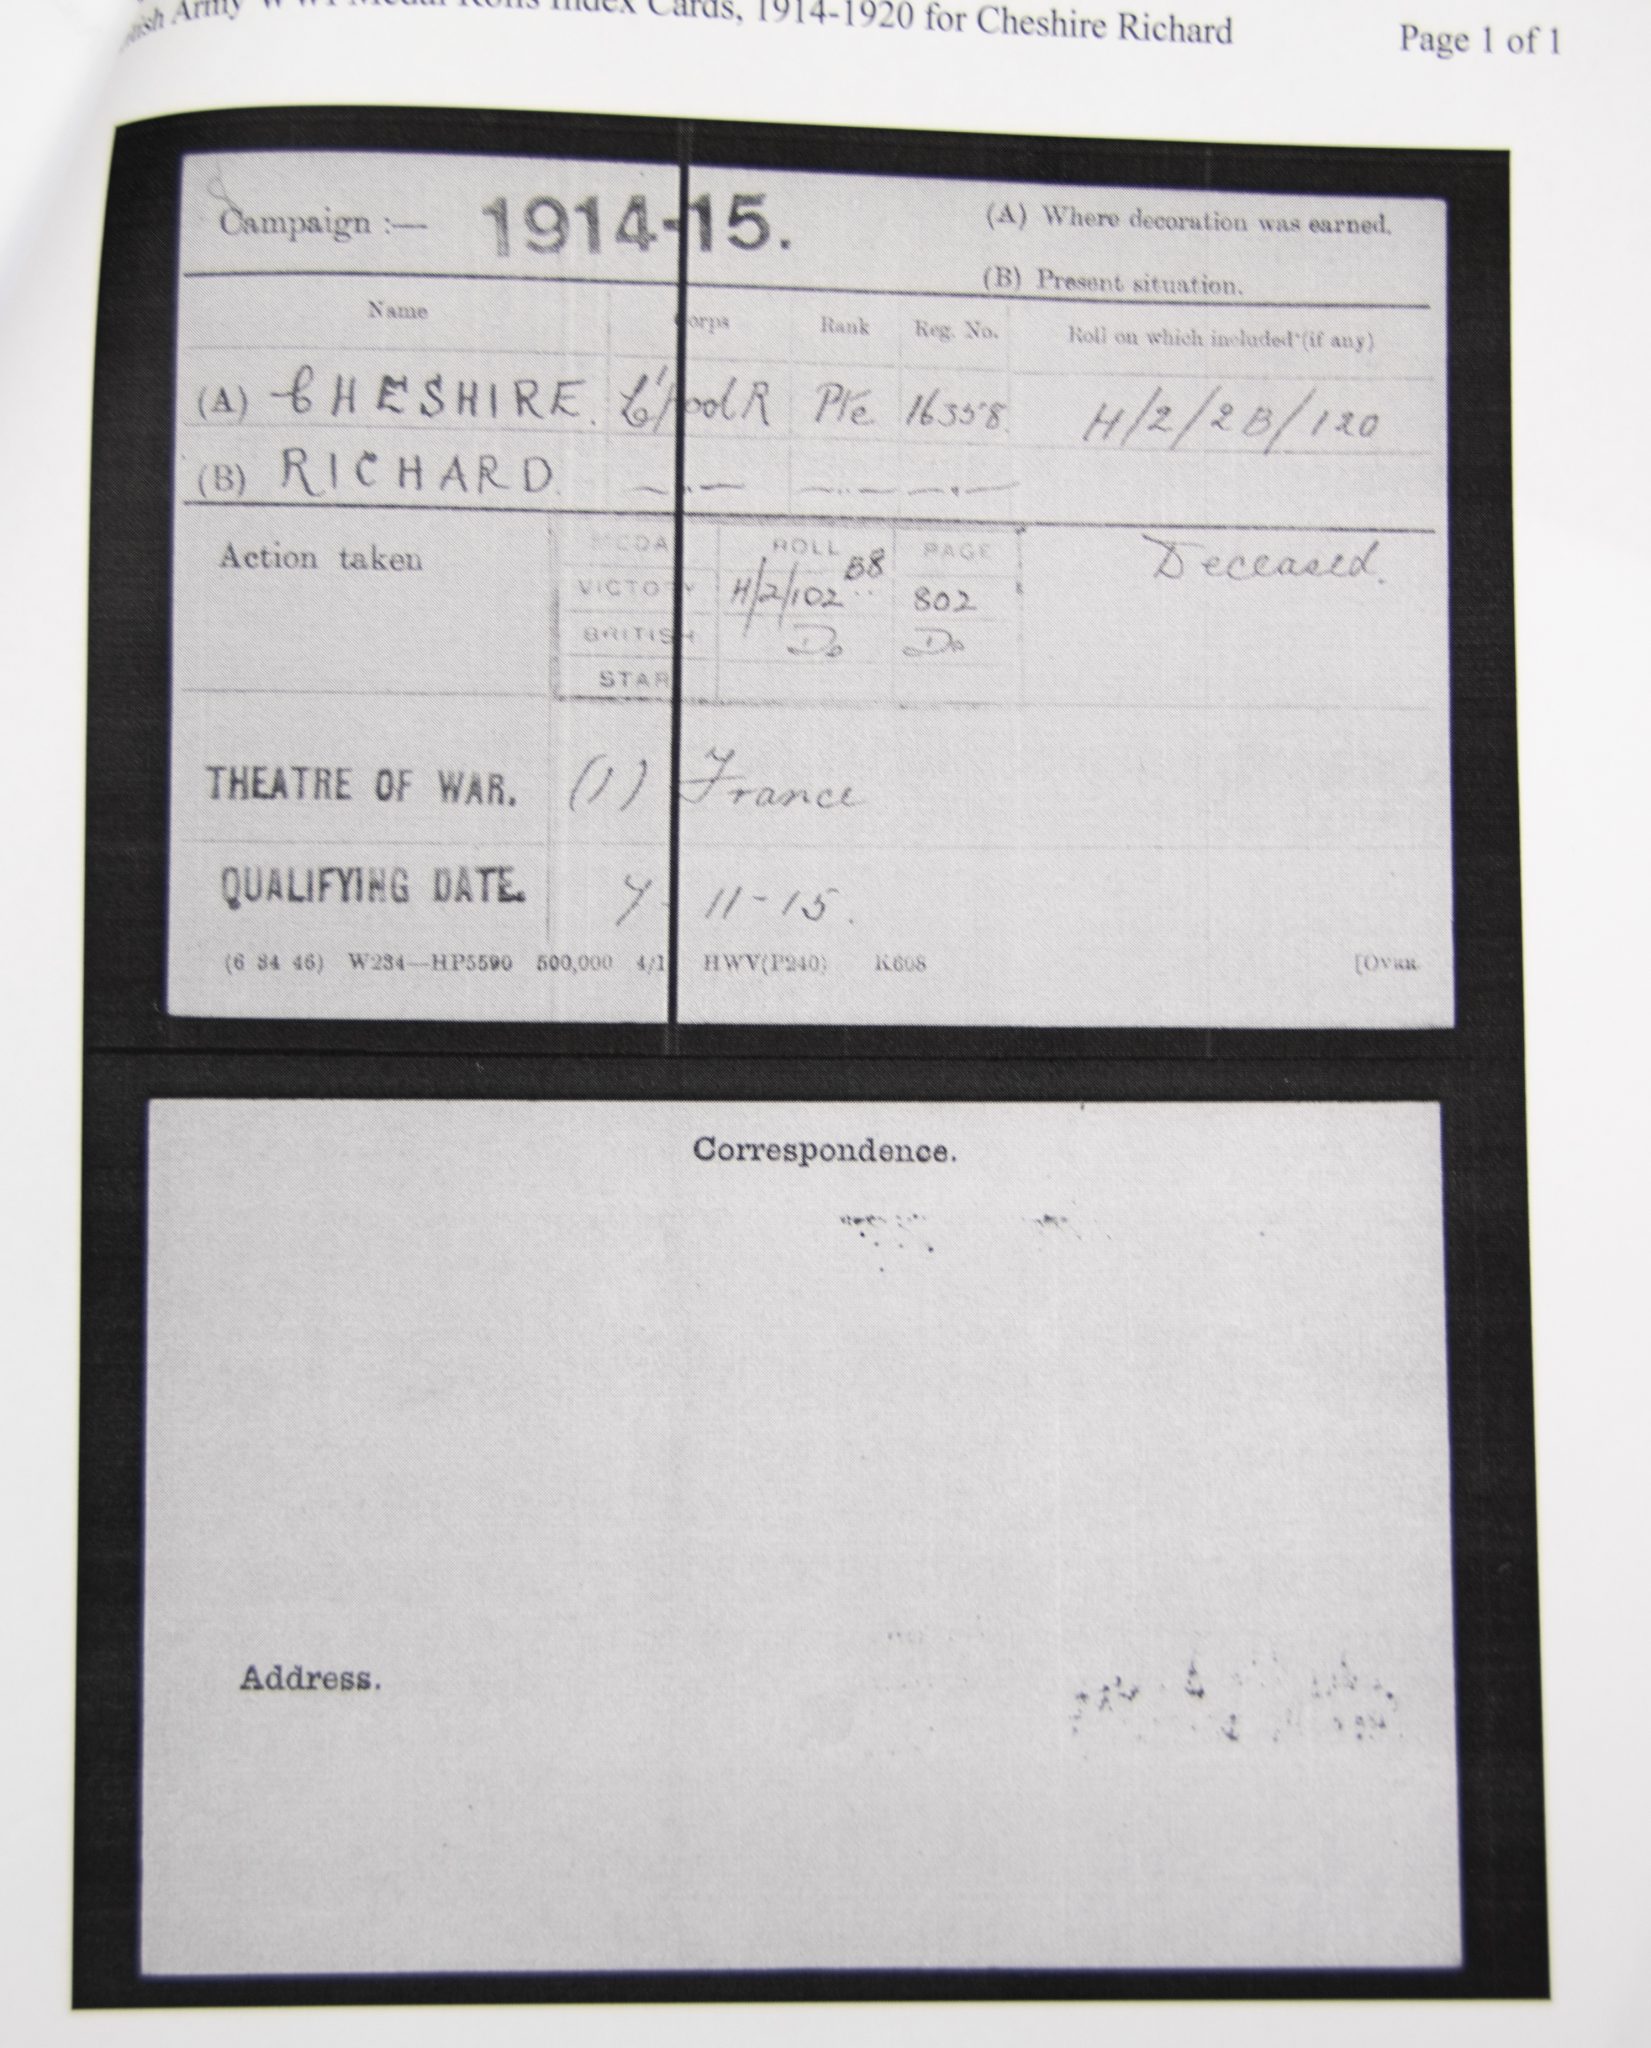 Army WW1 Medal Rolls Index Cards, 1914-1920 for Cheshire Richard Page 1 of 1
Campaign :— 1914-15.
(A) Where decoration was earned.
(B) Present situation.
Name orps Rank Reg. No. Roll on which included (if any)
(A) CHESHIRE. L'pool R Pte 16358. H/2/2B/120
(B) RICHARD. —..— —..— —.—
Action taken
ROLL PAGE
VICTO Y H/2/102 B8 802
BRITISH Do Do
STAR
Deceased.
THEATRE OF WAR. (1) France
QUALIFYING DATE. 7-11-15.
(6 34 46) W234—HP5590 500,000 4/1 HWV(P240) K608 [OVER
Correspondence.
Address.